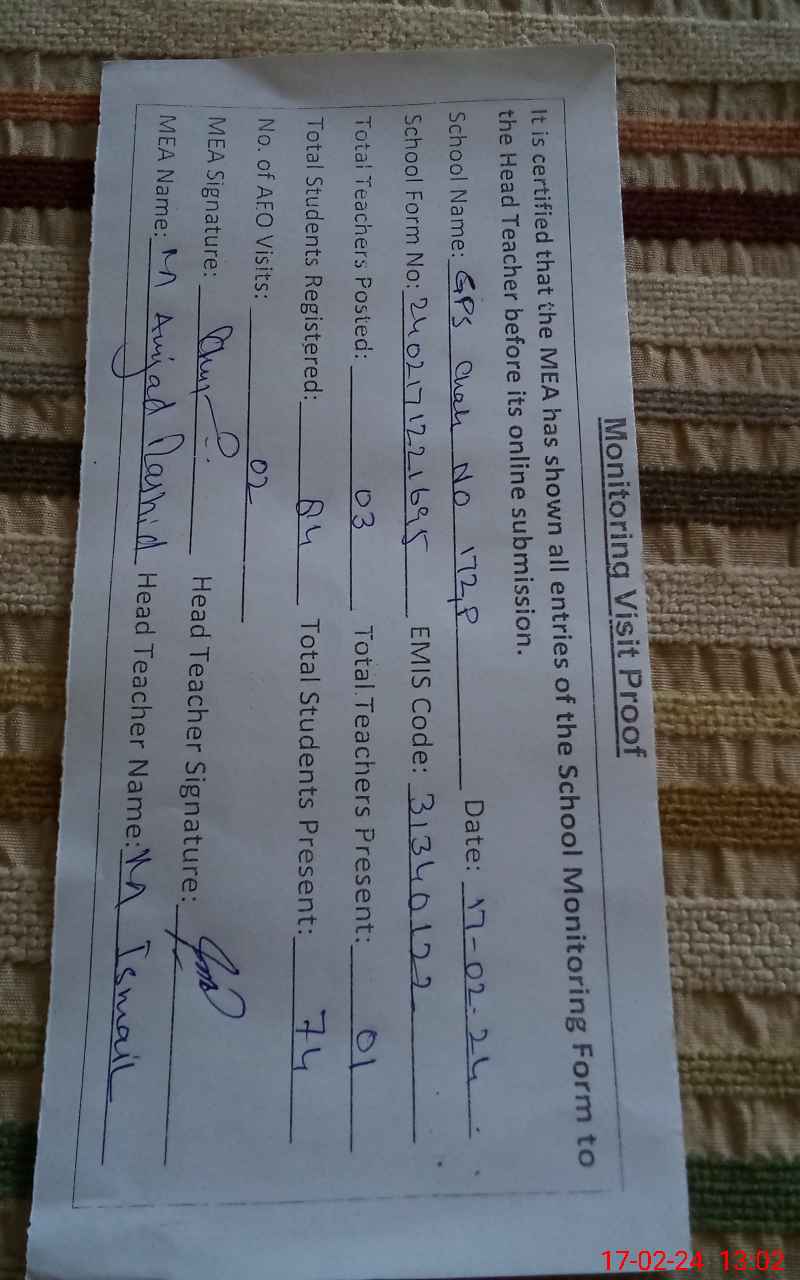 Monitoring Visit Proof
It is certified that the MEA has shown all entries of the School Monitoring Form to
the Head Teacher before its online submission.
School Name: GPS Chak No 172,P Date: 17-02-24
School Form No: 2402171221695 EMIS Code: 31340122
Total Teachers Posted: 03 Total Teachers Present: 01
Total Students Registered: 84 Total Students Present: 74
No. of AEO Visits: 02
MEA Signature: Head Teacher Signature:
MEA Name: M Amjad Rashid Head Teacher Name: M Ismail
17-02-24 13:02